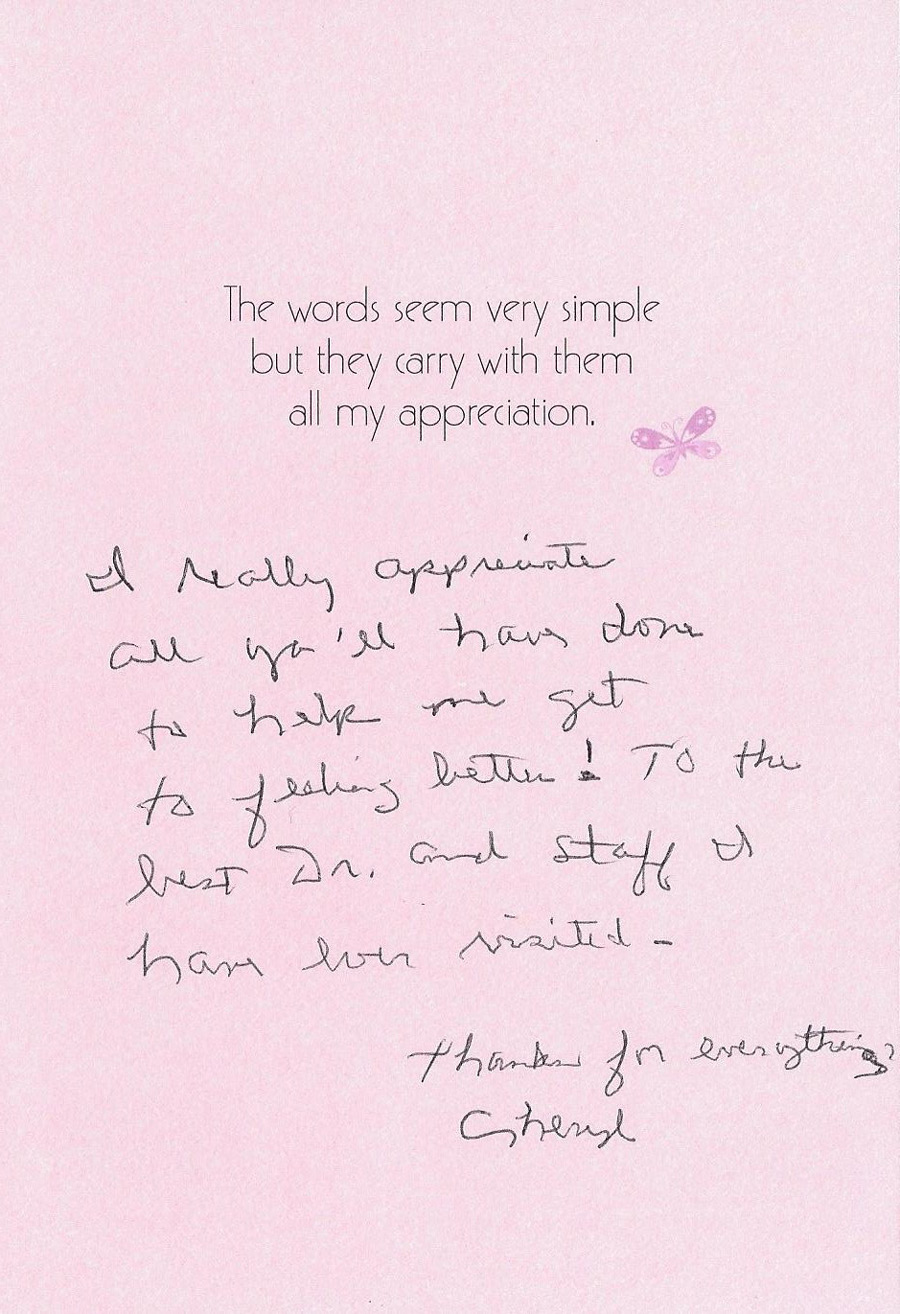 The words seem very simple
but they carry with them
all my appreciation.
I really appreciate
all ya'll have done
to help me get
to feeling better! To the
best Dr. and staff I
have ever visited-
Thanks for everything
Cheryl